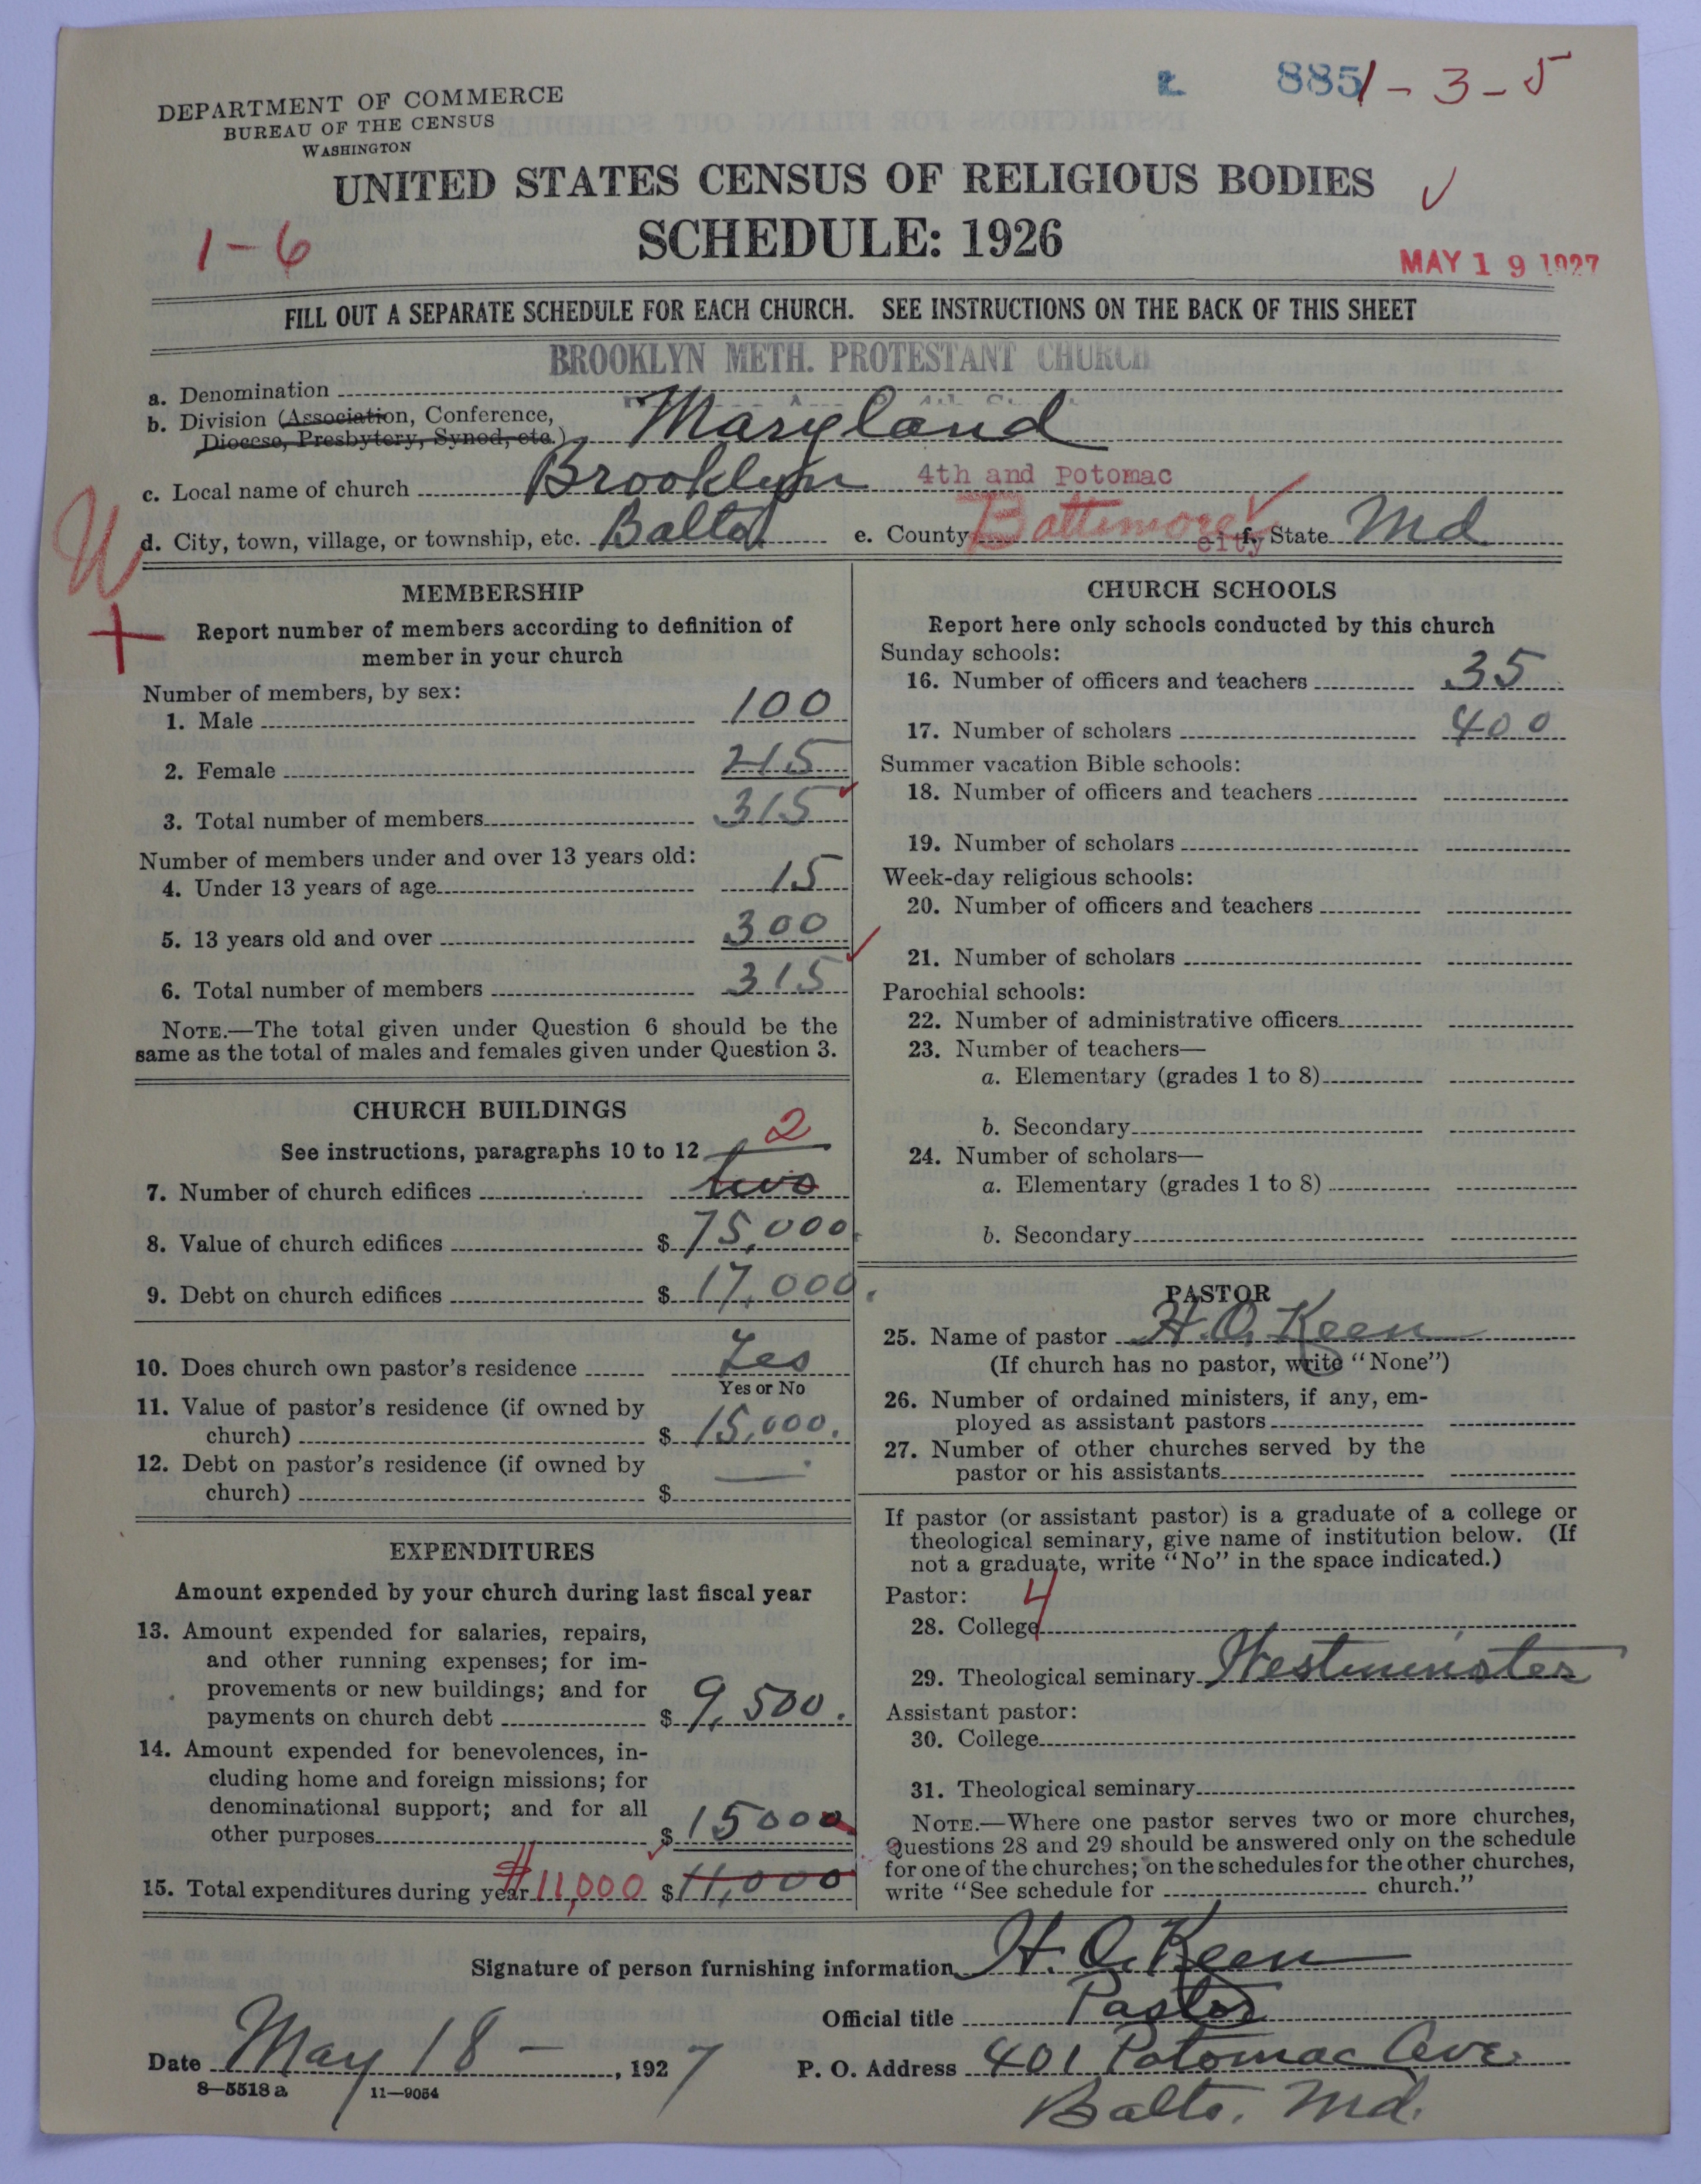 885 1-3-5
DEPARTMENT OF COMMERCE
BUREAU OF THE CENSUS
WASHINGTON
UNITED STATES CENSUS OF RELIGIOUS BODIES
SCHEDULE: 1926
1-6
MAY 19 1927
FILL OUT A SEPARATE SCHEDULE FOR EACH CHURCH. SEE INSTRUCTIONS ON THE BACK OF THIS SHEET
BROOKLYN METH. PROTESTANT CHURCH
a. Denomination
b. Division (Association, Conference,
Diocese, Presbytery, Synod, etc.) Maryland
c. Local name of church Brooklyn 4th and Potomac
d. City, town, village, or township, etc. Balto. e. County Baltimore city f. State Md
W
+
MEMBERSHIP
Report number of members according to definition of
member in your church
Number of members, by sex:
1. Male 100
2. Female 215
3. Total number of members 315
Number of members under and over 13 years old:
4. Under 13 years of age 15
5. 13 years old and over 300
6. Total number of members 315
NOTE.—The total given under Question 6 should be the
same as the total of males and females given under Question 3.
CHURCH BUILDINGS
See instructions, paragraphs 10 to 12 2
7. Number of church edifices two
8. Value of church edifices $ 75,000
9. Debt on church edifices $ 17,000.
10. Does church own pastor's residence Yes
Yes or No
11. Value of pastor's residence (if owned by
church) $ 15,000.
12. Debt on pastor's residence (if owned by
church) $ —
EXPENDITURES
Amount expended by your church during last fiscal year
13. Amount expended for salaries, repairs,
and other running expenses; for im-
provements or new buildings; and for
payments on church debt $ 9,500.
14. Amount expended for benevolences, in-
cluding home and foreign missions; for
denominational support; and for all
other purposes $ 15000
15. Total expenditures during year $11,000 $ 11,000
CHURCH SCHOOLS
Report here only schools conducted by this church
Sunday schools:
16. Number of officers and teachers 35
17. Number of scholars 400
Summer vacation Bible schools:
18. Number of officers and teachers
19. Number of scholars
Week-day religious schools:
20. Number of officers and teachers
21. Number of scholars
Parochial schools:
22. Number of administrative officers
23. Number of teachers—
a. Elementary (grades 1 to 8)
b. Secondary
24. Number of scholars—
a. Elementary (grades 1 to 8)
b. Secondary
PASTOR
25. Name of pastor H. O. Keen
(If church has no pastor, write "None")
26. Number of ordained ministers, if any, em-
ployed as assistant pastors
27. Number of other churches served by the
pastor or his assistants
If pastor (or assistant pastor) is a graduate of a college or
theological seminary, give name of institution below. (If
not a graduate, write "No" in the space indicated.)
Pastor: 4
28. College
29. Theological seminary Westminster
Assistant pastor:
30. College
31. Theological seminary
NOTE.—Where one pastor serves two or more churches,
Questions 28 and 29 should be answered only on the schedule
for one of the churches; on the schedules for the other churches,
write "See schedule for church."
Signature of person furnishing information H. O. Keen
Official title Pastor
Date May 18 - , 1927 P. O. Address 401 Potomac Ave.
8—5518 a 11—9054
Balto. Md.